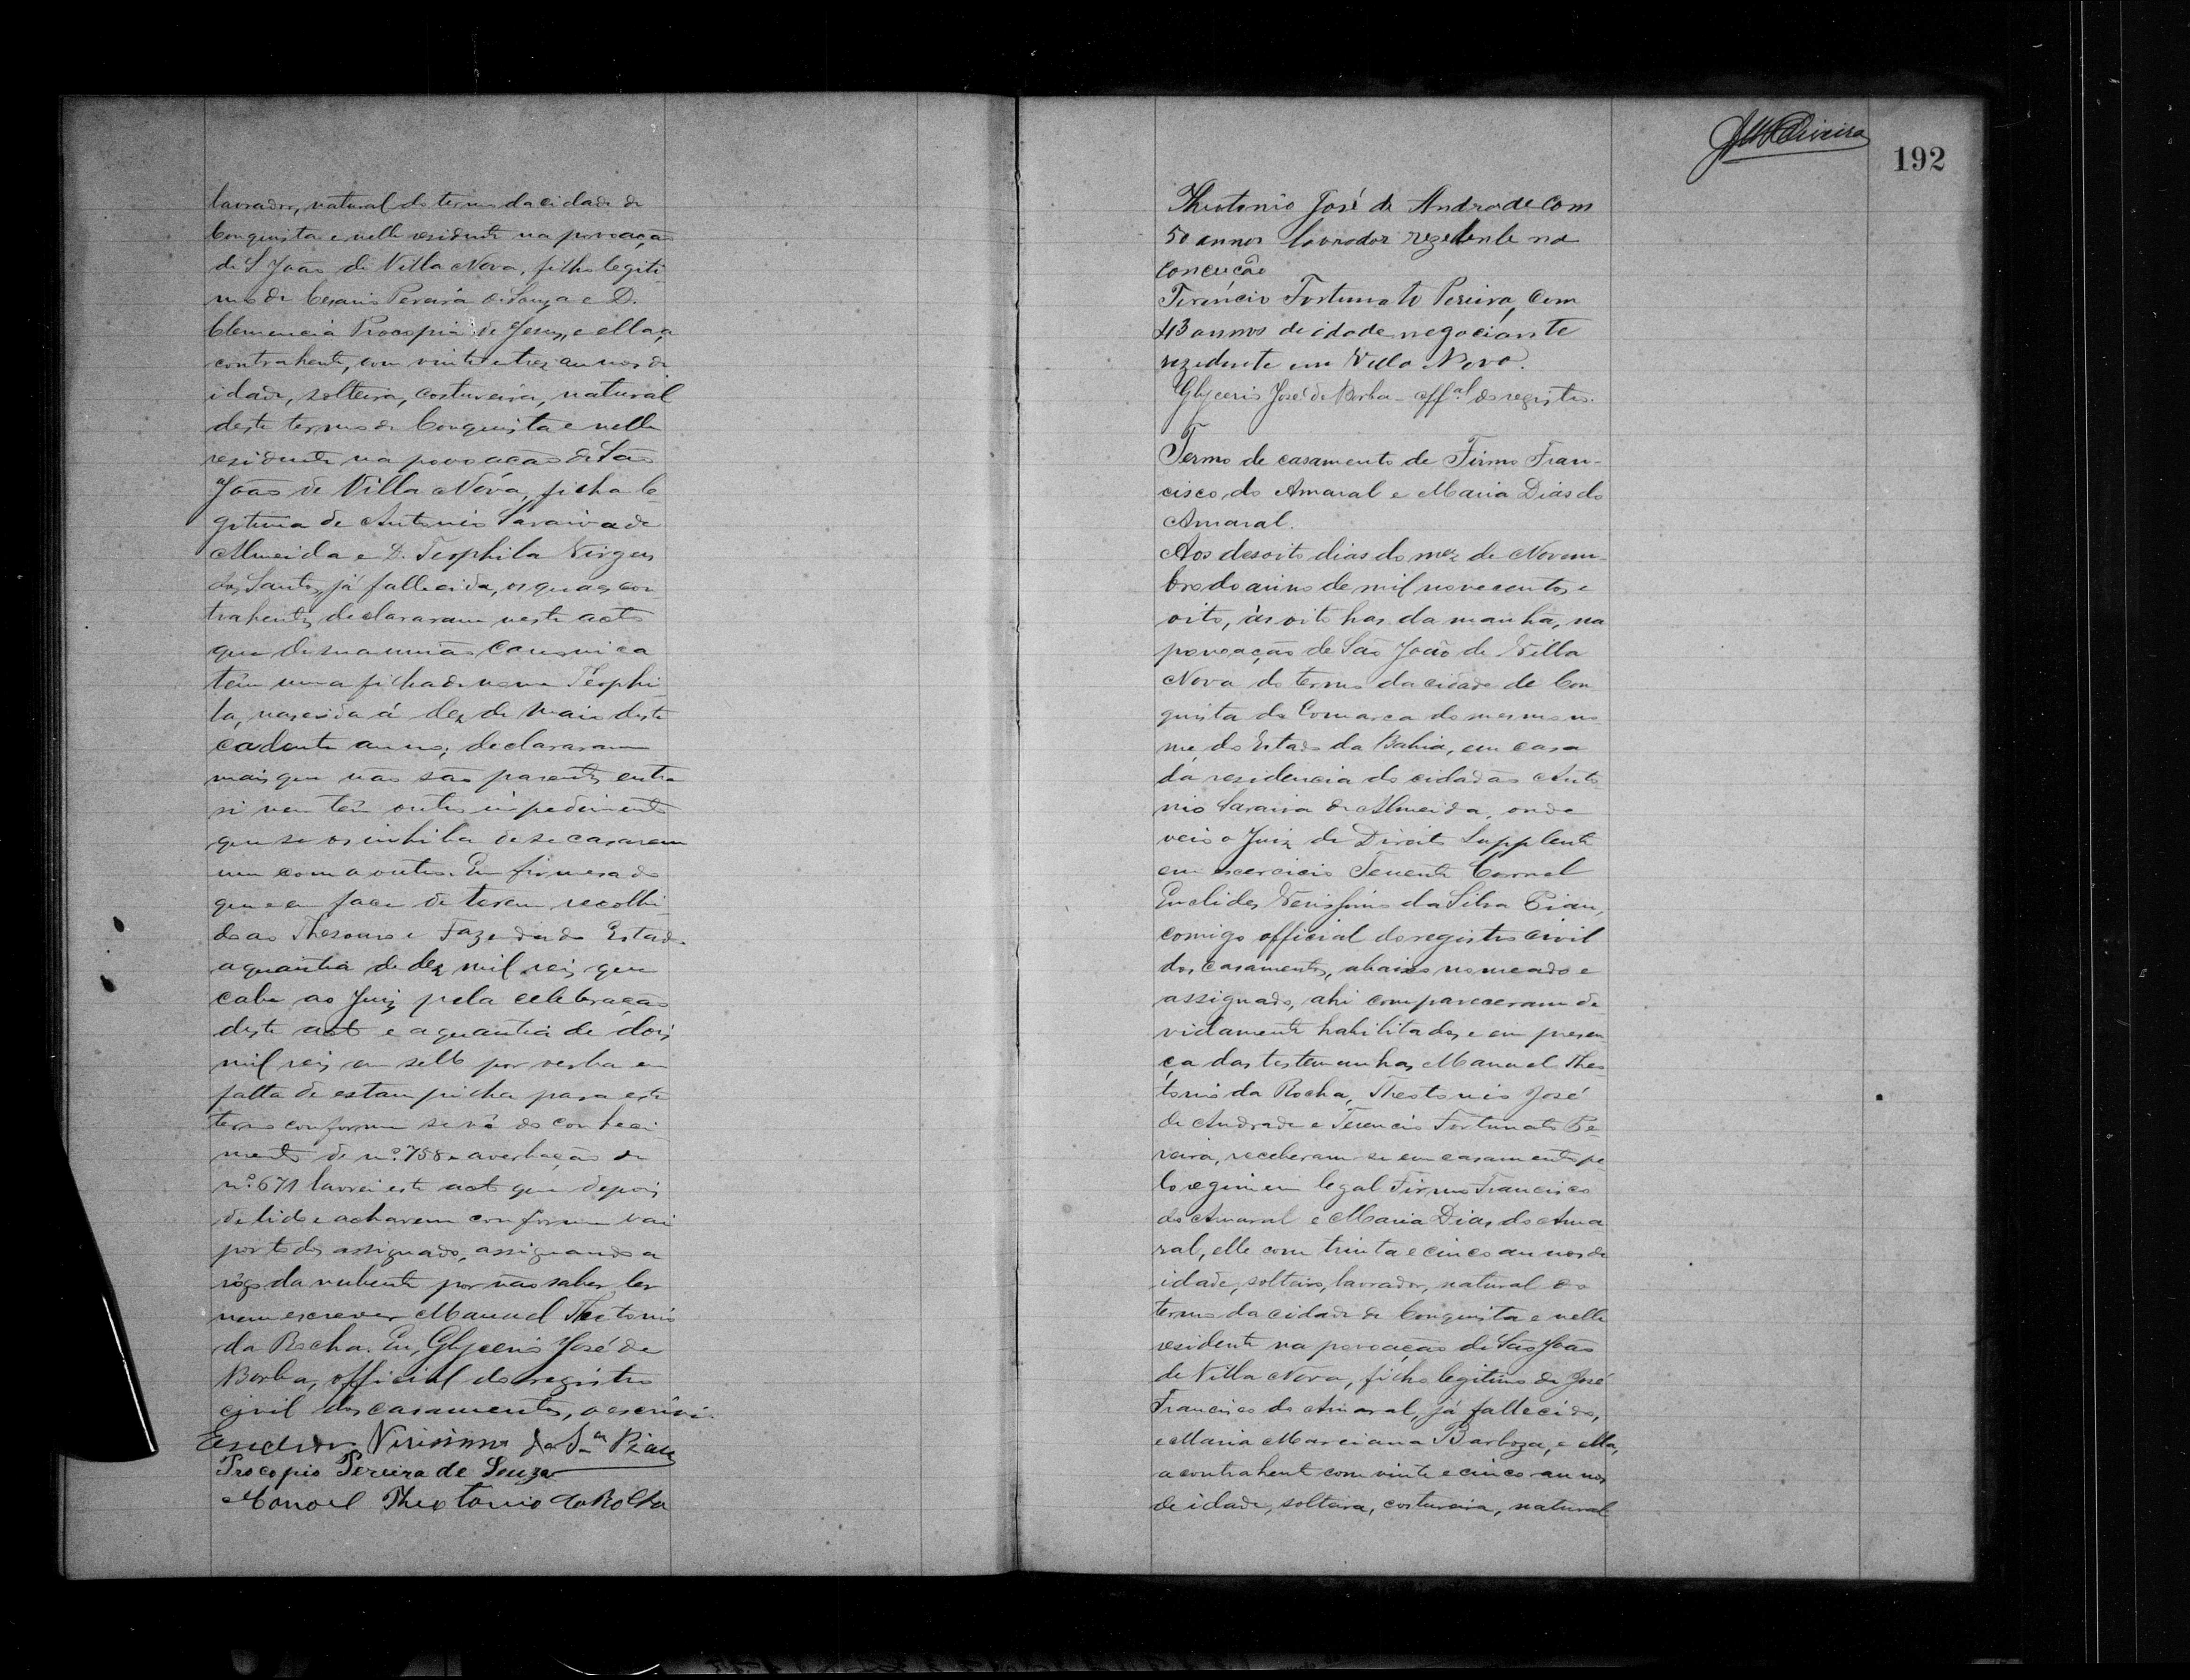 lavrador, natural do termo da cidade de
Conquista e nelle residente na povoação
de S. João de Villa Nova, filho legiti-
mo de Cesario Pereira de Souza e D.
Clemencia Procopia de Jesus, e ella, a
contrahente, com vinte e trez annos de
idade, solteira, costureira, natural
deste termo de Conquista e nelle
residente na povoação de São
João de Villa Nova, filha le-
gitima de Antonio Saraiva de
Almeida e D. Teophila Virgens
dos Santos, já fallecida, os quaes con
trahentes declararam neste acto
que de sua união canonica
têm uma filha de nome Teophi-
la, nascida á dez de Maio deste
cadente anno; declararam
mais que não são parentes entre
si nem têm outro impedimento
que se os inhiba de se casarem
um com o outro. Em firmesa do
que e em face de terem recolhi-
do ao Thesouro e Fazenda do Estado
a quantia de dez mil reis que
cabe ao Juiz pela celebração
deste acto e a quantia de dois
mil reis em sello por verba em
falta de estampilha para este
termo conforme se vê do conheci
mento de nº. 758 e averbação de
nº. 671 lavrei este acto que depois
de lido e acharem conforme vai
por todos assignado, assignando a
rôgo da nubente por não saber ler
nem escrever Manuel Theotonio
da Rocha. Eu, Glycerio José de
Borba, official do registro
civil dos casamentos, o escrivi.
Euclides Virissimo da Sª Piau
Procopio Pereira de Souza
Manoel Theotonio da Rocha
192
Theotonio José de Andrade com
50 annos lavrador rezedente na
Conceição
Terencio Fortunato Pereira, com
43 annos de idade negociante
rezedente em Villa Nova.
Glycerio José de Borba - offal. do registro.
Termo de casamento de Firmo Fran-
cisco do Amaral e Maria Dias do
Amaral.
Aos desoito dias do mez de Novem-
bro do anno de mil novecentos e
oito, ás oito has. da manhã, na
povoação de São João de Villa
Nova do termo da cidade de Con
quista da Comarca do mesmo no
me, do Estado da Bahia, em casa
da residencia do cidadão Anto
nio Saraiva de Almeida, onde
veio o Juiz de Direito Supplente
em exercicio Tenente Coronel
Euclides Verissimo da Silva Piau,
comigo official do registro civil
dos casamentos, abaixo nomeado e
assignado, ahi compareceram de
vidamente habilitados e em presen
ça das testemunhas Manuel Theo
tonio da Rocha, Theotonio José
de Andrade e Terencio Fortunato Pe-
reira, receberam-se em casamento pe
lo regimen legal Firmo Francisco
do Amaral e Maria Dias do Ama
ral, elle com trinta e cinco annos de
idade, solteiro, lavrador, natural do
termo da cidade de Conquista e nelle
residente na povoação de São João
de Villa Nova, filho legitimo de José
Francisco do Amaral, já fallecido,
e Maria Marciana Barboza, e ella,
a contrahente com vinte e cinco annos
de idade, solteira, costureira, natural